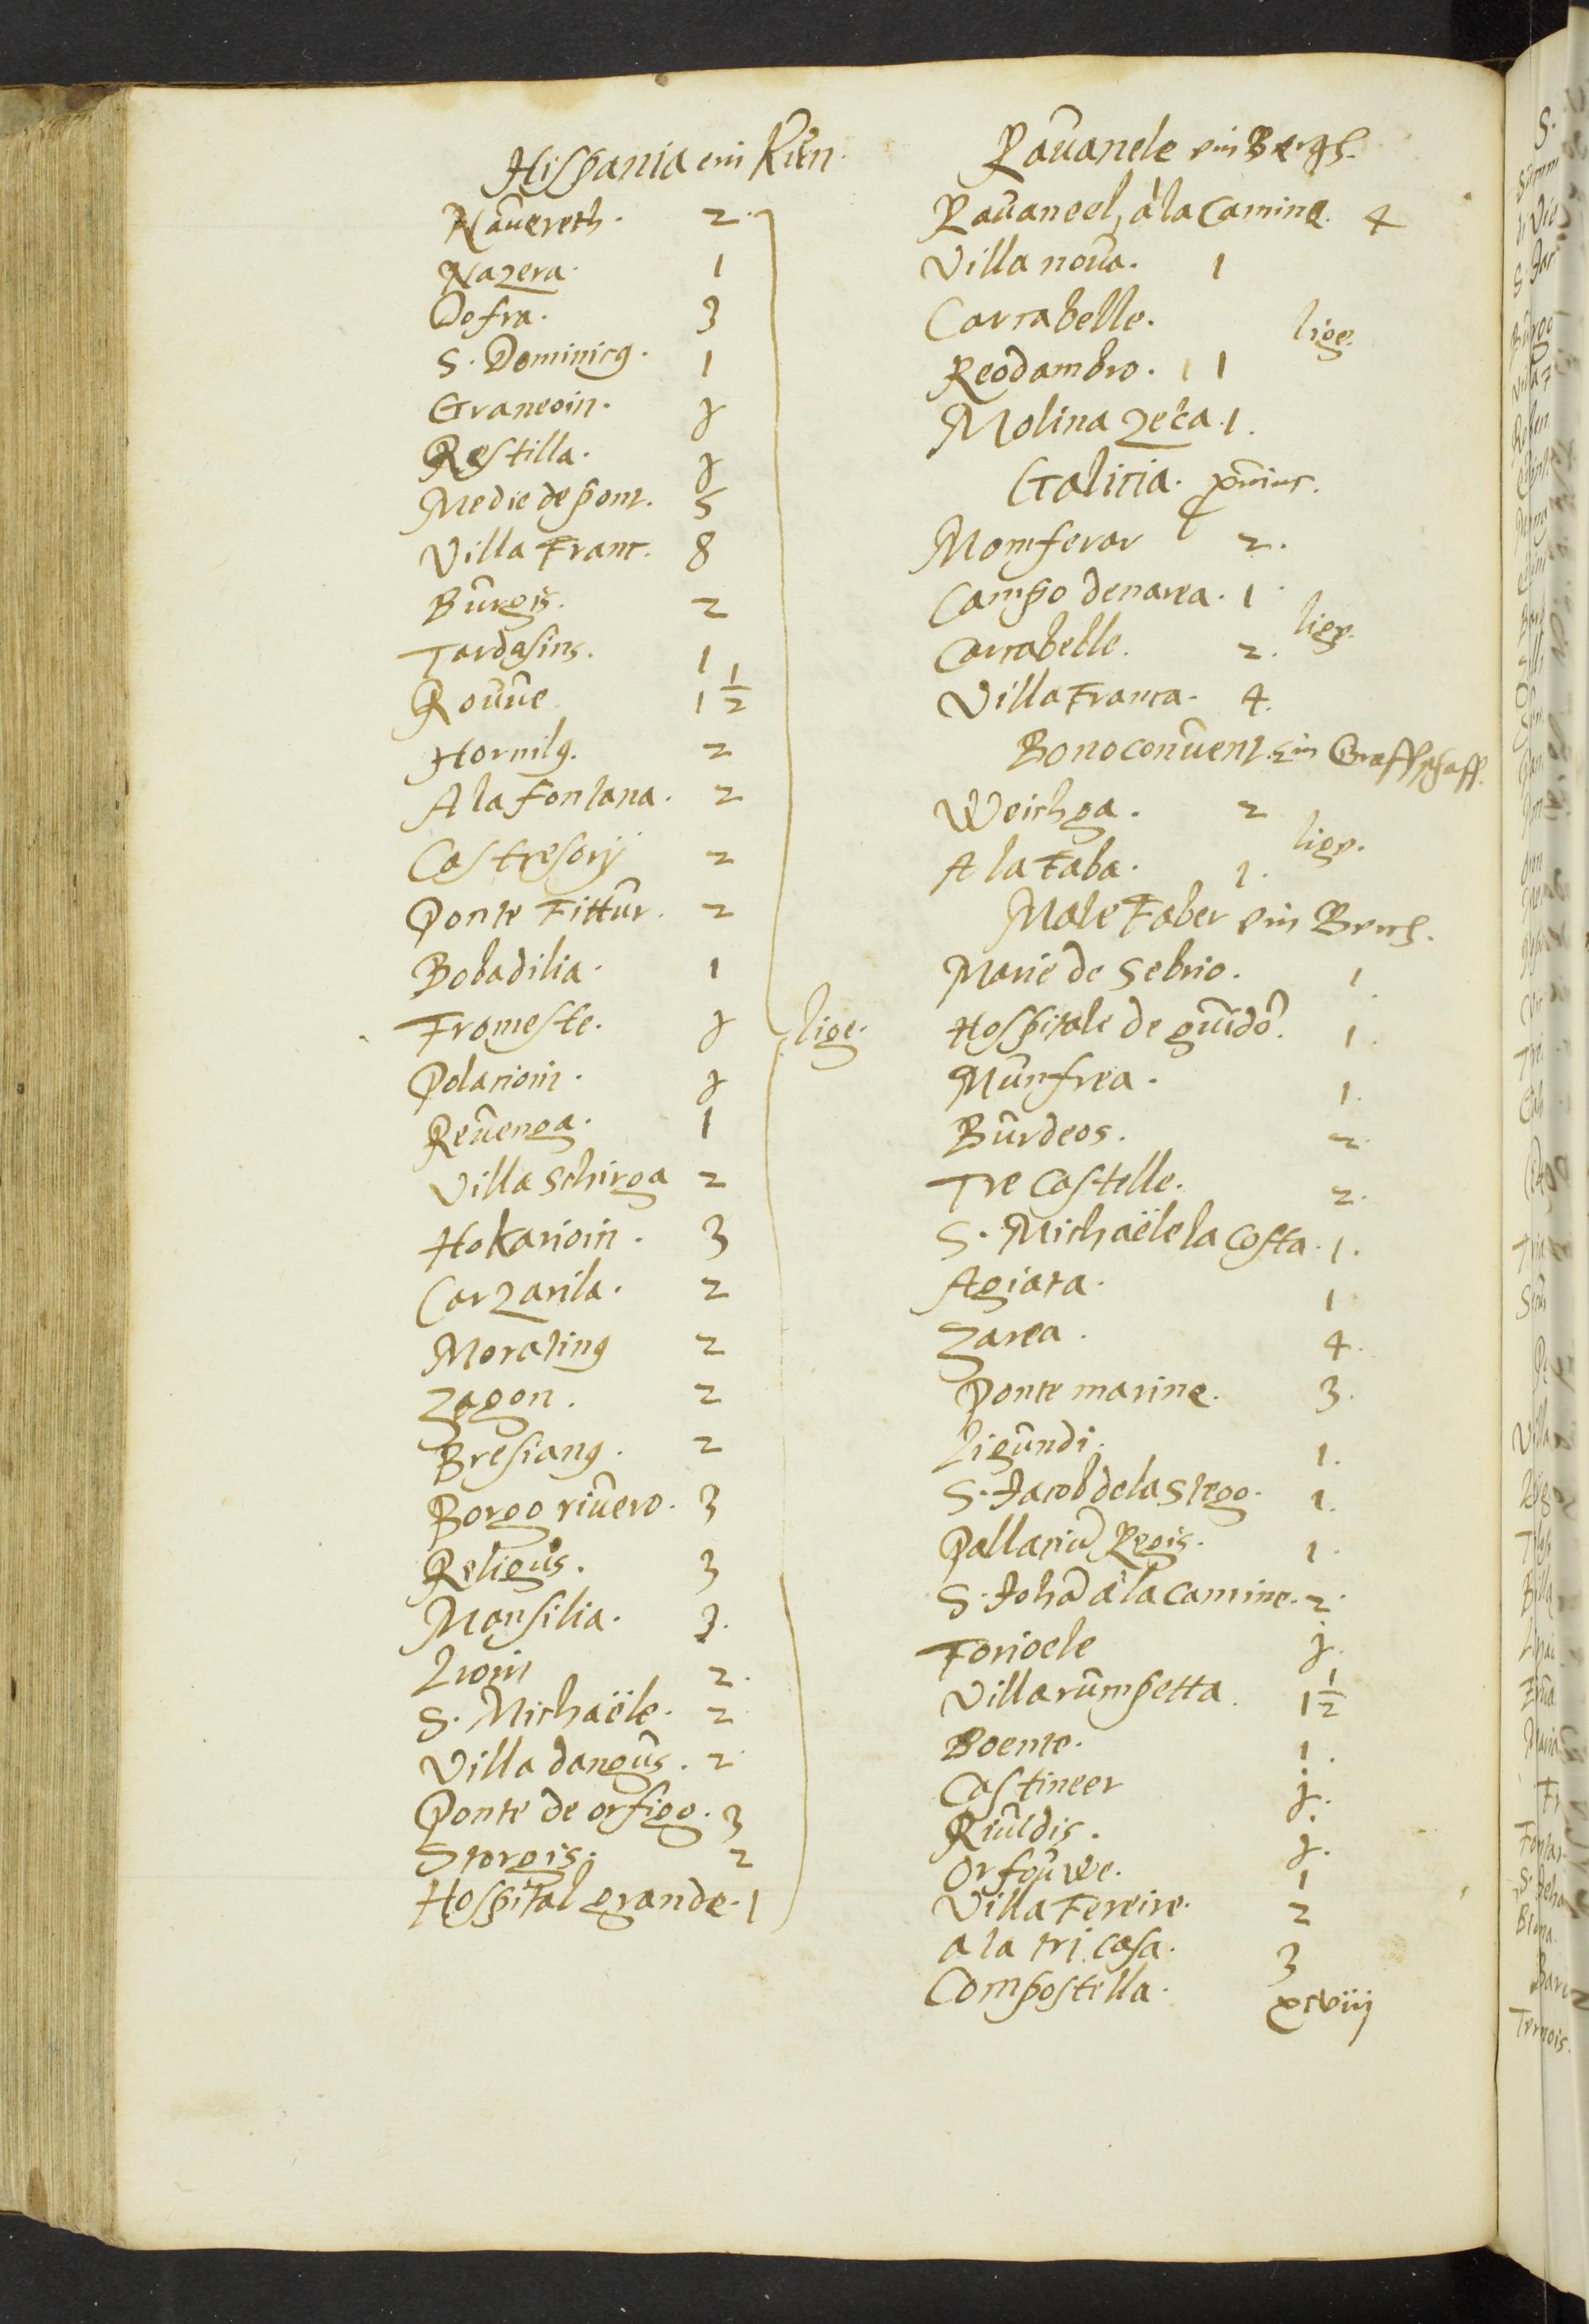 Hispania ein Kün.
Nauereth. 2.
Nazera. 1
Dofra. 3
S. Dominicg. 1
Graneoin. j
Restilla. j
Medie de pont. 5
Villa Franc. 8
Burgis. 2
Tardasins. 1
Rouue 1 1/2
Hornilg. 2
A la fontana. 2
Castresorÿ 2
Ponte Fittur. 2
Bobadilia. 1
Fromeste. j lige.
Polarioin. j
Reuenga. 1
Villa Schirga 2
Hokarioin. 3
Carzarila. 2
Morating 2
Zagon. 2
Bresiang. 2
Borgo riuero. 3
Religus. 3
Monsilia. 3.
Lioin 2.
S. Michaële. 2
Villa dangus. 2
Ponte de orfigo. 3
Storgis. 2
Hospital grande. 1
Rauanele ein Bergh.
Rauaneel, à la Camine. 4
Villa noua. 1
Carrabelle. lige.
Reodambro. 1 1
Molina zeca. 1.
Galicia.
Momferar 2.
Campo denarea. 1
Carrabelle. 2. lige.
Villa Franca. 4.
Bonoconuent. ein Graffschaff.
Weichga. 2
A la Faba. 1. lige.
Male Faber ein Berch.
Marie de Sebrio. 1.
Hospitale de guido. 1.
Munfrea. 1.
Burdeos. 2.
Tre Castelle. 2.
S. Michaële la Costa. 1.
Agiata. 1
Zarea. 4.
Ponte marine. 3.
Ligundi. 1.
S. Jacob de la Stego. 1.
Pallariu Regis. 1.
S. Joha à la Camine. 2.
Forioele j.
Villa rumpetta. 1 1/2
Boente. 1.
Castineer j.
Riuldis. j.
Orfouwe. 1
Villa Fereire. 2
a la tri casa. 3
Compostella. xcviij